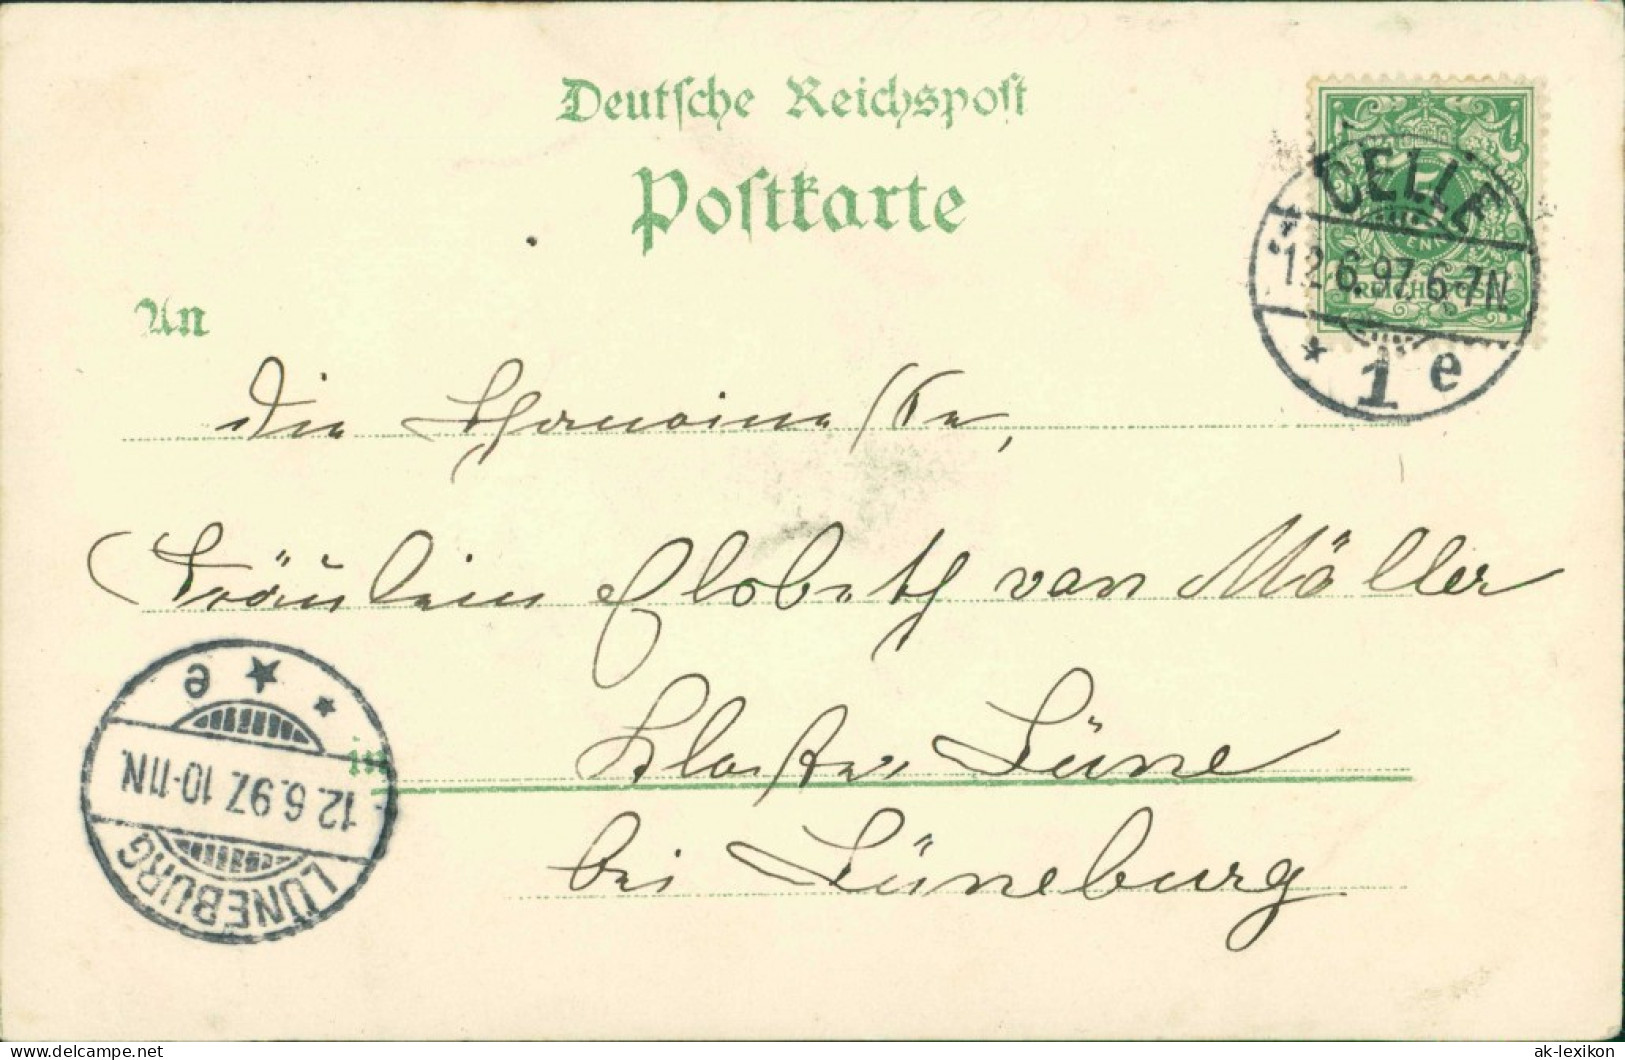 Deutsche Reichspost
Postkarte
CELLE
12.6.97.6-7N
* 1 e
5
PFENNIG
REICHSPOST
An
die
Fräulein Elsbeth von Möller
Kloster Lüne
in
bei Lüneburg
LÜNEBURG
12.6.97. 10-11N.
* * e
ak-lexikon
delcampe.net